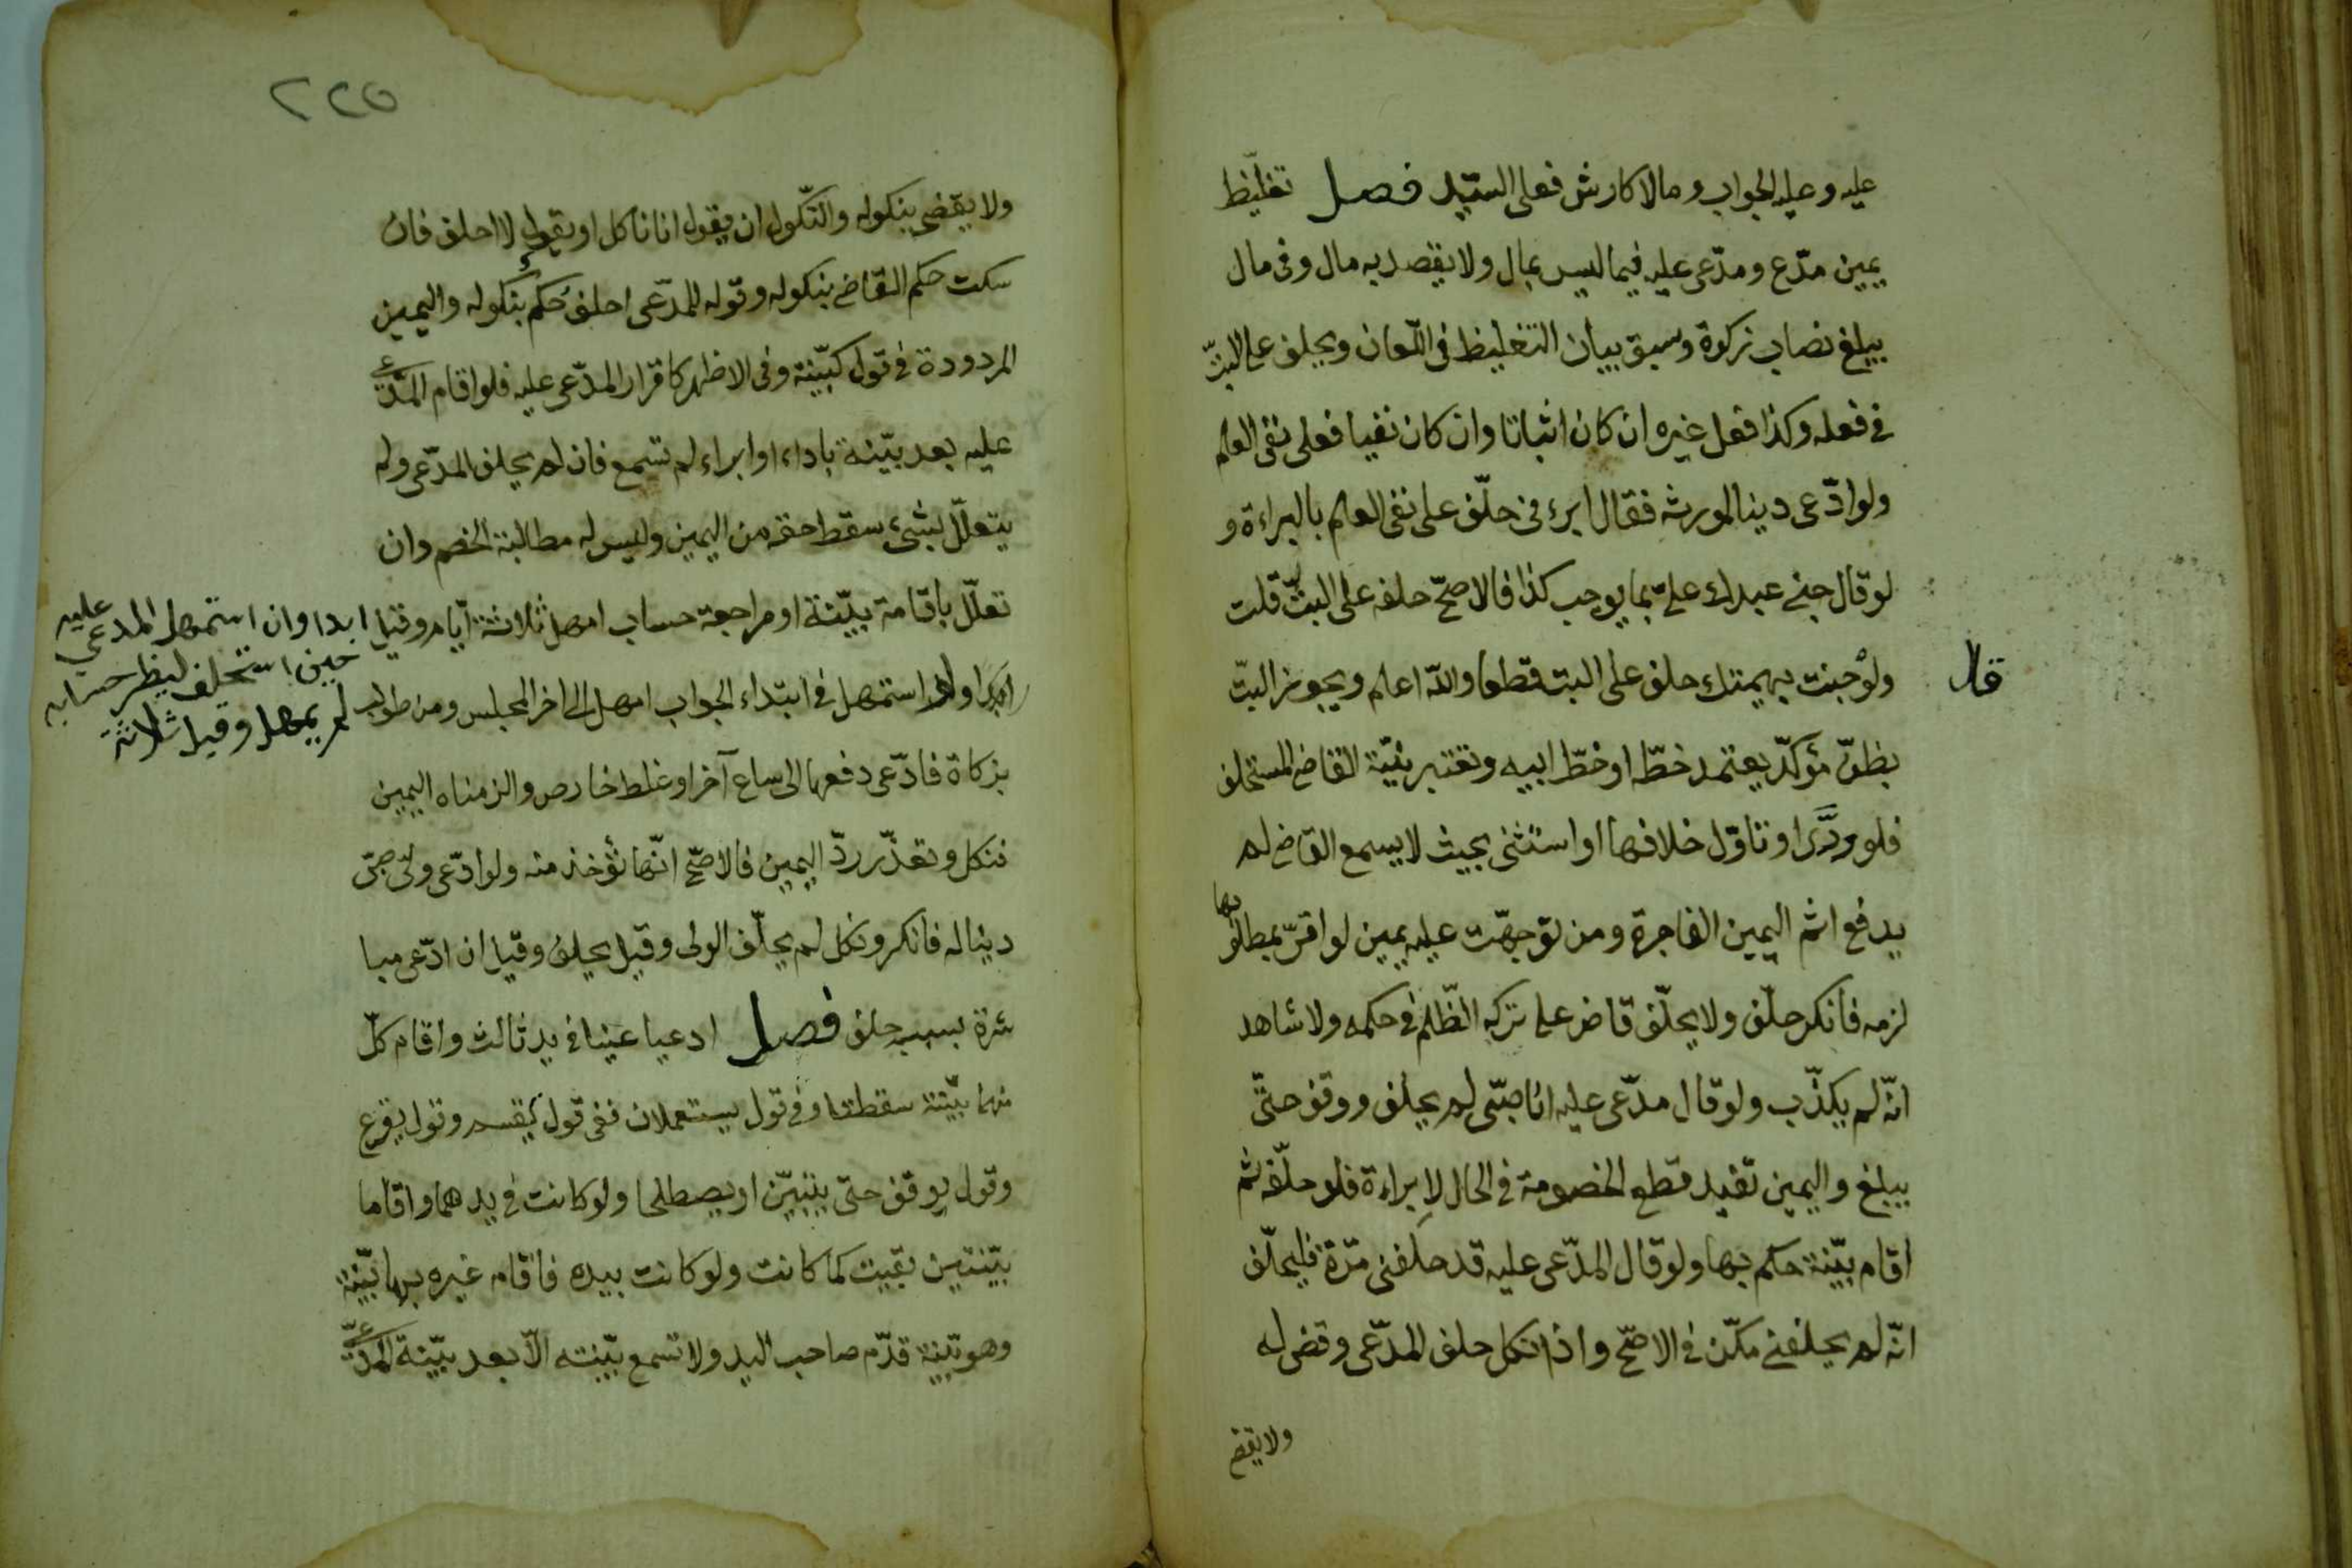 عليه وعليه الجواب وما لا كارش فعلى السيّد فصل تغليظ
يمين مدّع ومدّعى عليه فيما ليس بمال ولا يقصد به مال وفى مال
يبلغ نصاب زكوة وسبق بيان التغليظ فى اللّعان ويحلف على البتّ
فى فعله وكذا فعل غيره ان كان اثباتا وان كان نفيا فعلى نفى العلم
ولو ادّعى دينا لمورثه فقال ابرءنى حلّف على نفى العلم بالبراءة و
لو قال جنى عبدك علىّ بما يوجب كذا فالاصحّ حلفه على البتّ قلت
ولو جنت بهيمتك حلف على البت قطعا والله اعلم ويجوز البتّ
قال
بظنّ مؤكّد يعتمد خطّه او خطّ ابيه وتعتبر نيّة القاضى المستحلف
فلو ورّى او تاوّل خلافها او استثنى بحيث لا يسمع القاضى لم
يدفع اثم اليمين الفاجرة ومن توجهّت عليه يمين لو اقرّ بمطلوبها
لزمه فانكر حلّف ولا يحلّف قاض على تركه الظّلم فى حكمه ولا شاهد
انّه لم يكذّب ولو قال مدّعى عليه انا صبّى لم يحلف ووقف حتّى
يبلغ واليمين تفيد قطع الخصومة فى الحال لا براءة فلو حلّفه ثم
اقام بيّنة حكم بها ولو قال المدّعى عليه قد حلفنى مرّة فليحلّف
انّه لم يحلفنى مكّن فى الاصحّ واذا نكل حلف المدّعى وقضى له
ولا يقضى
٢٢٥
ولا يقضى بنكوله والنّكول ان يقول انا ناكل او يقول لا احلف فان
سكت حكم القاضى بنكوله وقوله للمدّعى احلف حكم بنكوله واليمين
المردودة فى قول كبيّنة وفى الاظهر كاقرار المدّعى عليه فلو اقام المدّعى
عليه بعد بيّنة باداء او ابراء لم تسمع فان لم يحلف المدّعى ولم
يتعلّل بشىء سقط حقه من اليمين وليس له مطالبة الخصم وان
تعلّل باقامة بيّنة او مراجعة حساب امهل ثلاثة ايّام وقيل ابدا وان استمهل المدعى عليه
حين استحلف لينظر حسابه
لم يمهل وقيل ثلاثة
ولو استمهل فى ابتداء الجواب امهل الى اخر المجلس ومن طولب
بزكاة فادّعى دفعها الى ساع آخر او غلط خارص والزمناه اليمين
فنكل وتعذّر ردّ اليمين فالاصّح انّها تؤخذ منه ولو ادّعى ولىّ صبىّ
دينا له فانكر ونكل لم يحلّف الولى وقيل يحلف وقيل ان ادّعى مبا
شرة بسببه حلف فصل ادعيا عينا فى يد ثالث واقام كلّ
منهما بيّنة سقطتا وفى قول يستعملان ففى قول يقسم وقول يقرع
وقول يوقف حتى يتبيّن او يصطلحا ولو كانت فى يدهما واقاما
بيّنتين بقيت كما كانت ولو كانت بيده فاقام غيره بها بيّنة
وهو بيّنة قدّم صاحب اليد ولا تسمع بيّنته الّا بعد بيّنة المدّعى